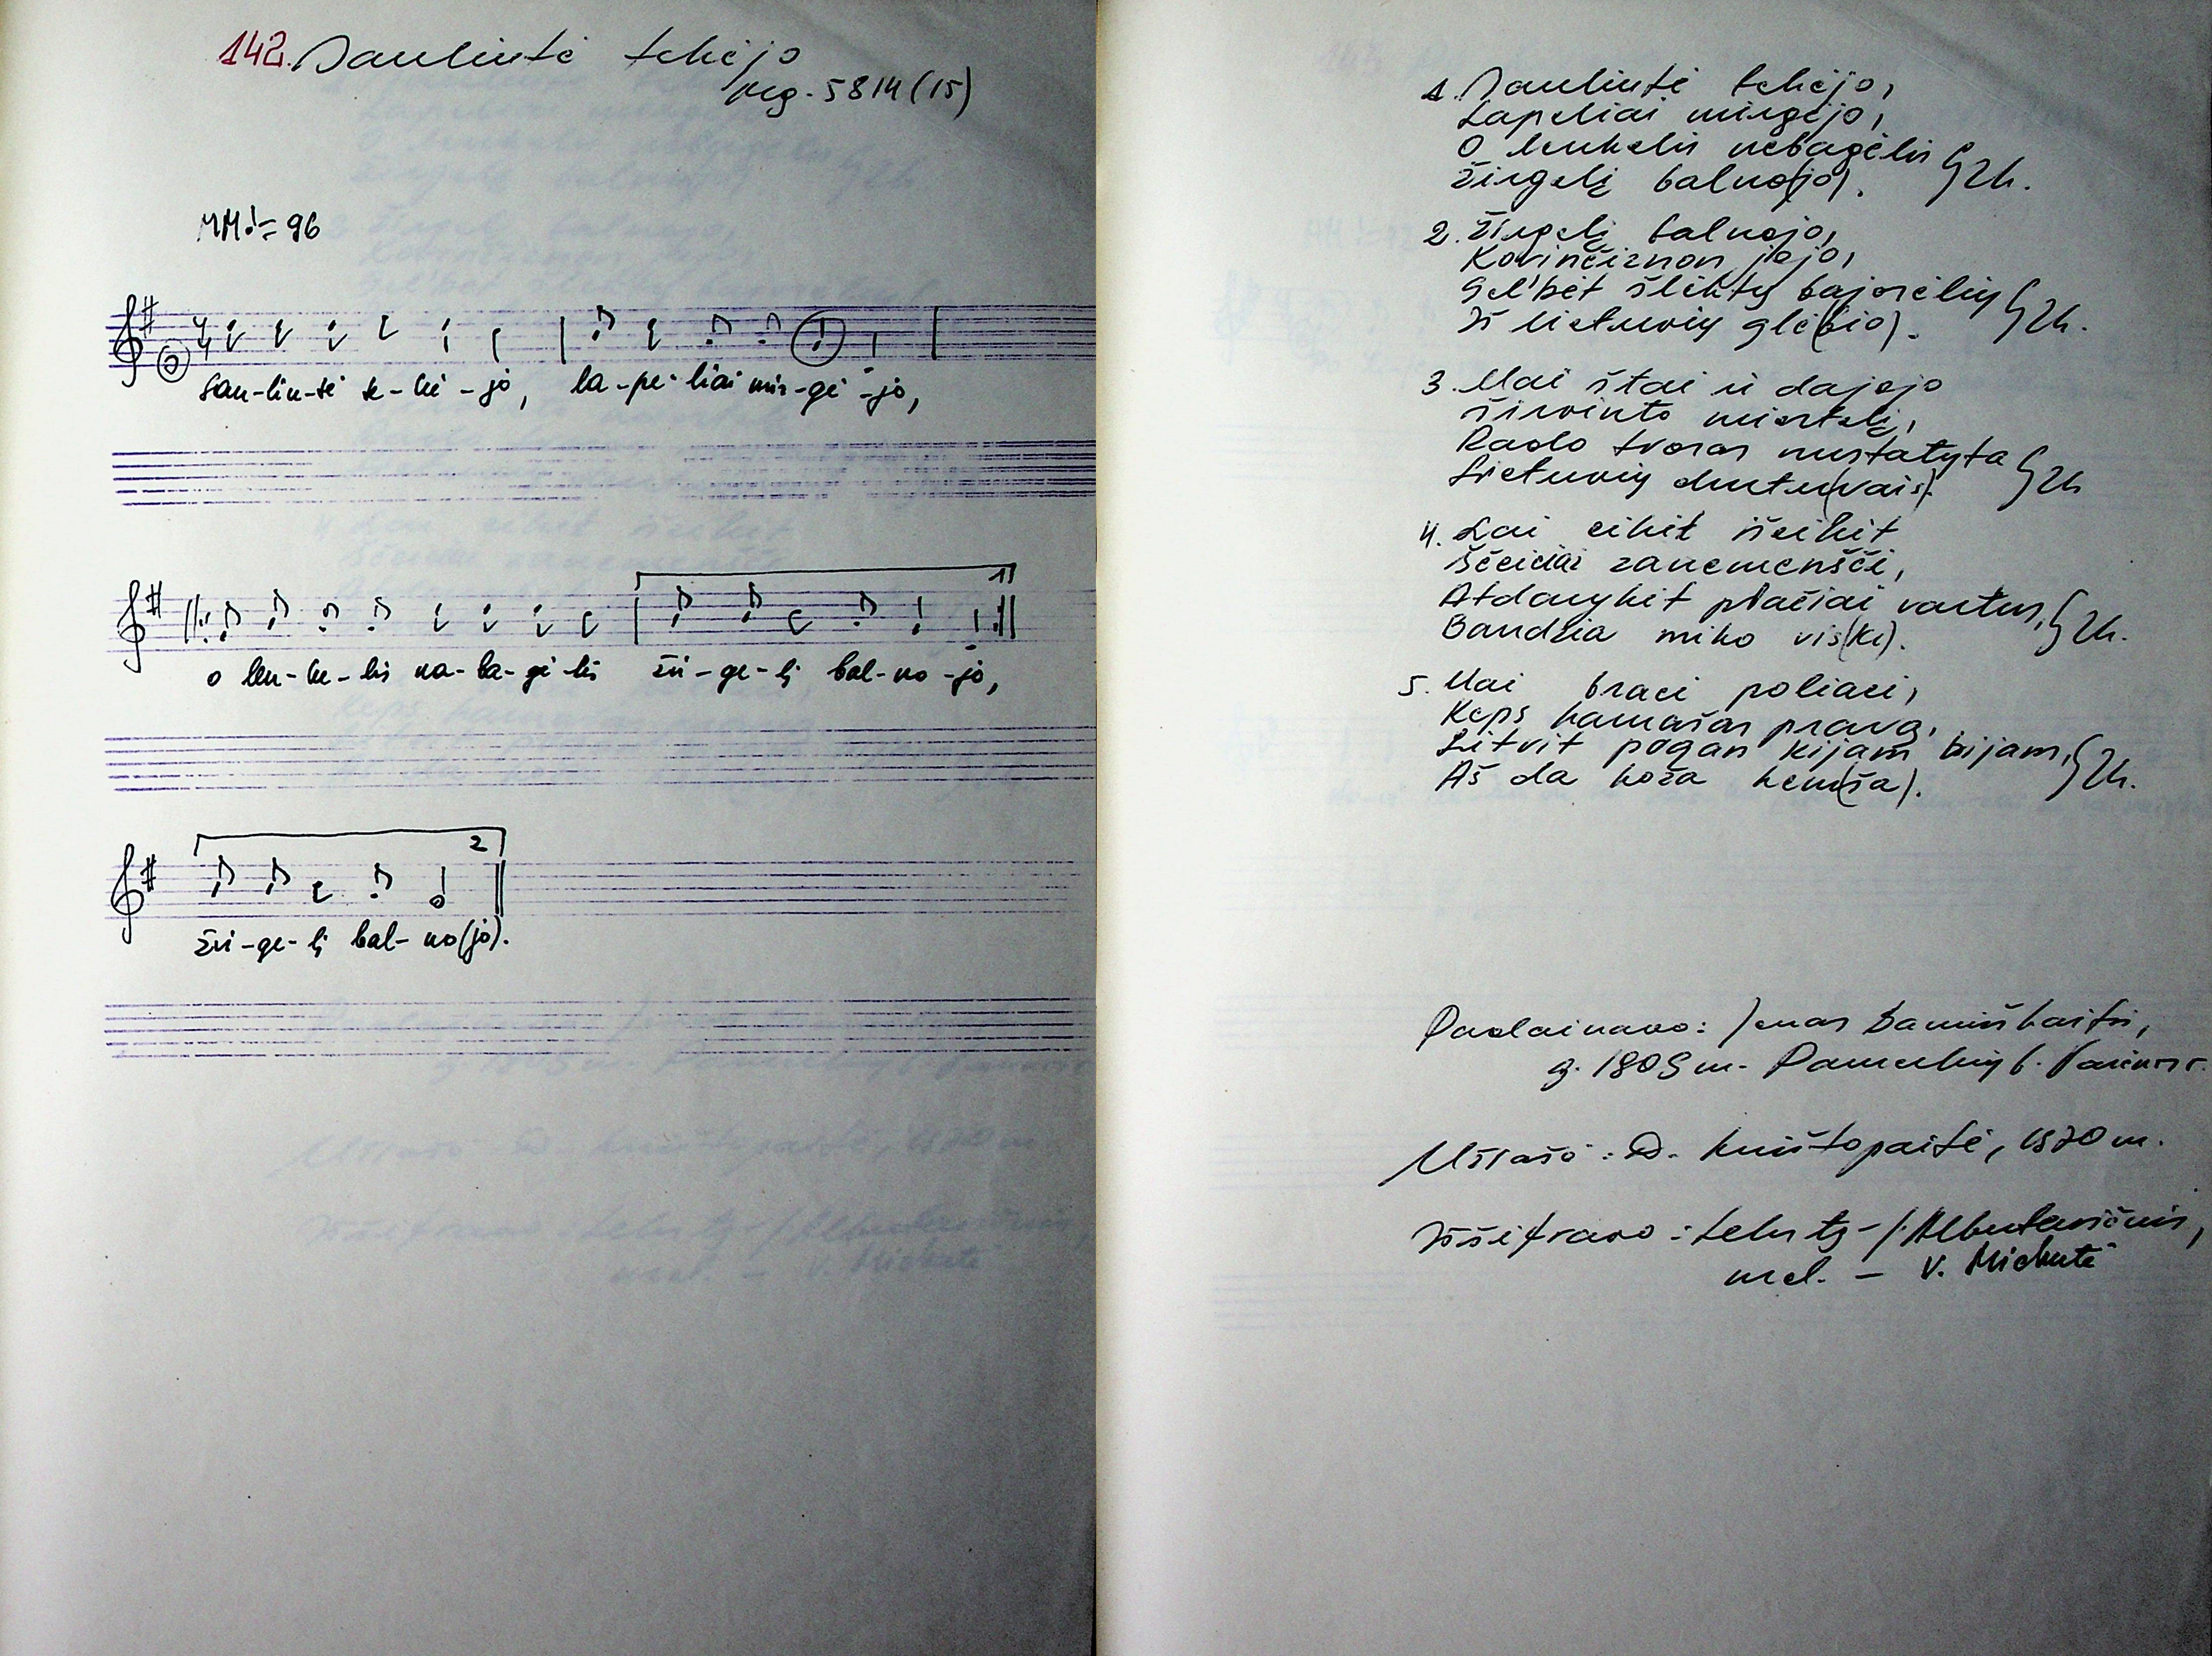 142. Sauliutė tekėjo
Mg. 5814 (15)
MM ♩= 96
Sau-liu-tė te-kė-jo, la-pe-liai mir-gė-jo,
o len-ke-lis na-ba-gė-lis žir-ge-lį bal-no-jo,
žir-ge-lį bal-no(jo).
1. Sauliutė tekėjo,
Lapeliai mirgėjo,
O lenkelis nebagėlis
Žirgelį balno(jo). } 2k.
2. Žirgelį balnojo,
jojo,
Gelbėt šlėktų bajorėlių
Iš lietuvių glė(bio). } 2k.
3. Nai štai ir dajojo
Širvinto miestelį,
Rado tvoras nustatyta
Lietuvių durtu(vais). } 2k
4. Lai eikit išeikit
Atdarykit plačiai vartus,
Bandžia miko vis(ki). } 2k.
5. Nai braci poliaci,
Keps kamašas prava,
Litvit pogan kijam bijam,
Aš da koža kem(ša). } 2k.
Padainavo: Jonas
g. 1909 m. Pamerkių k. Varėnos r.
Užrašė: D. Krištopaitė, 1970 m.
Iššifravo: tekstą –
mel. – V. Mickutė